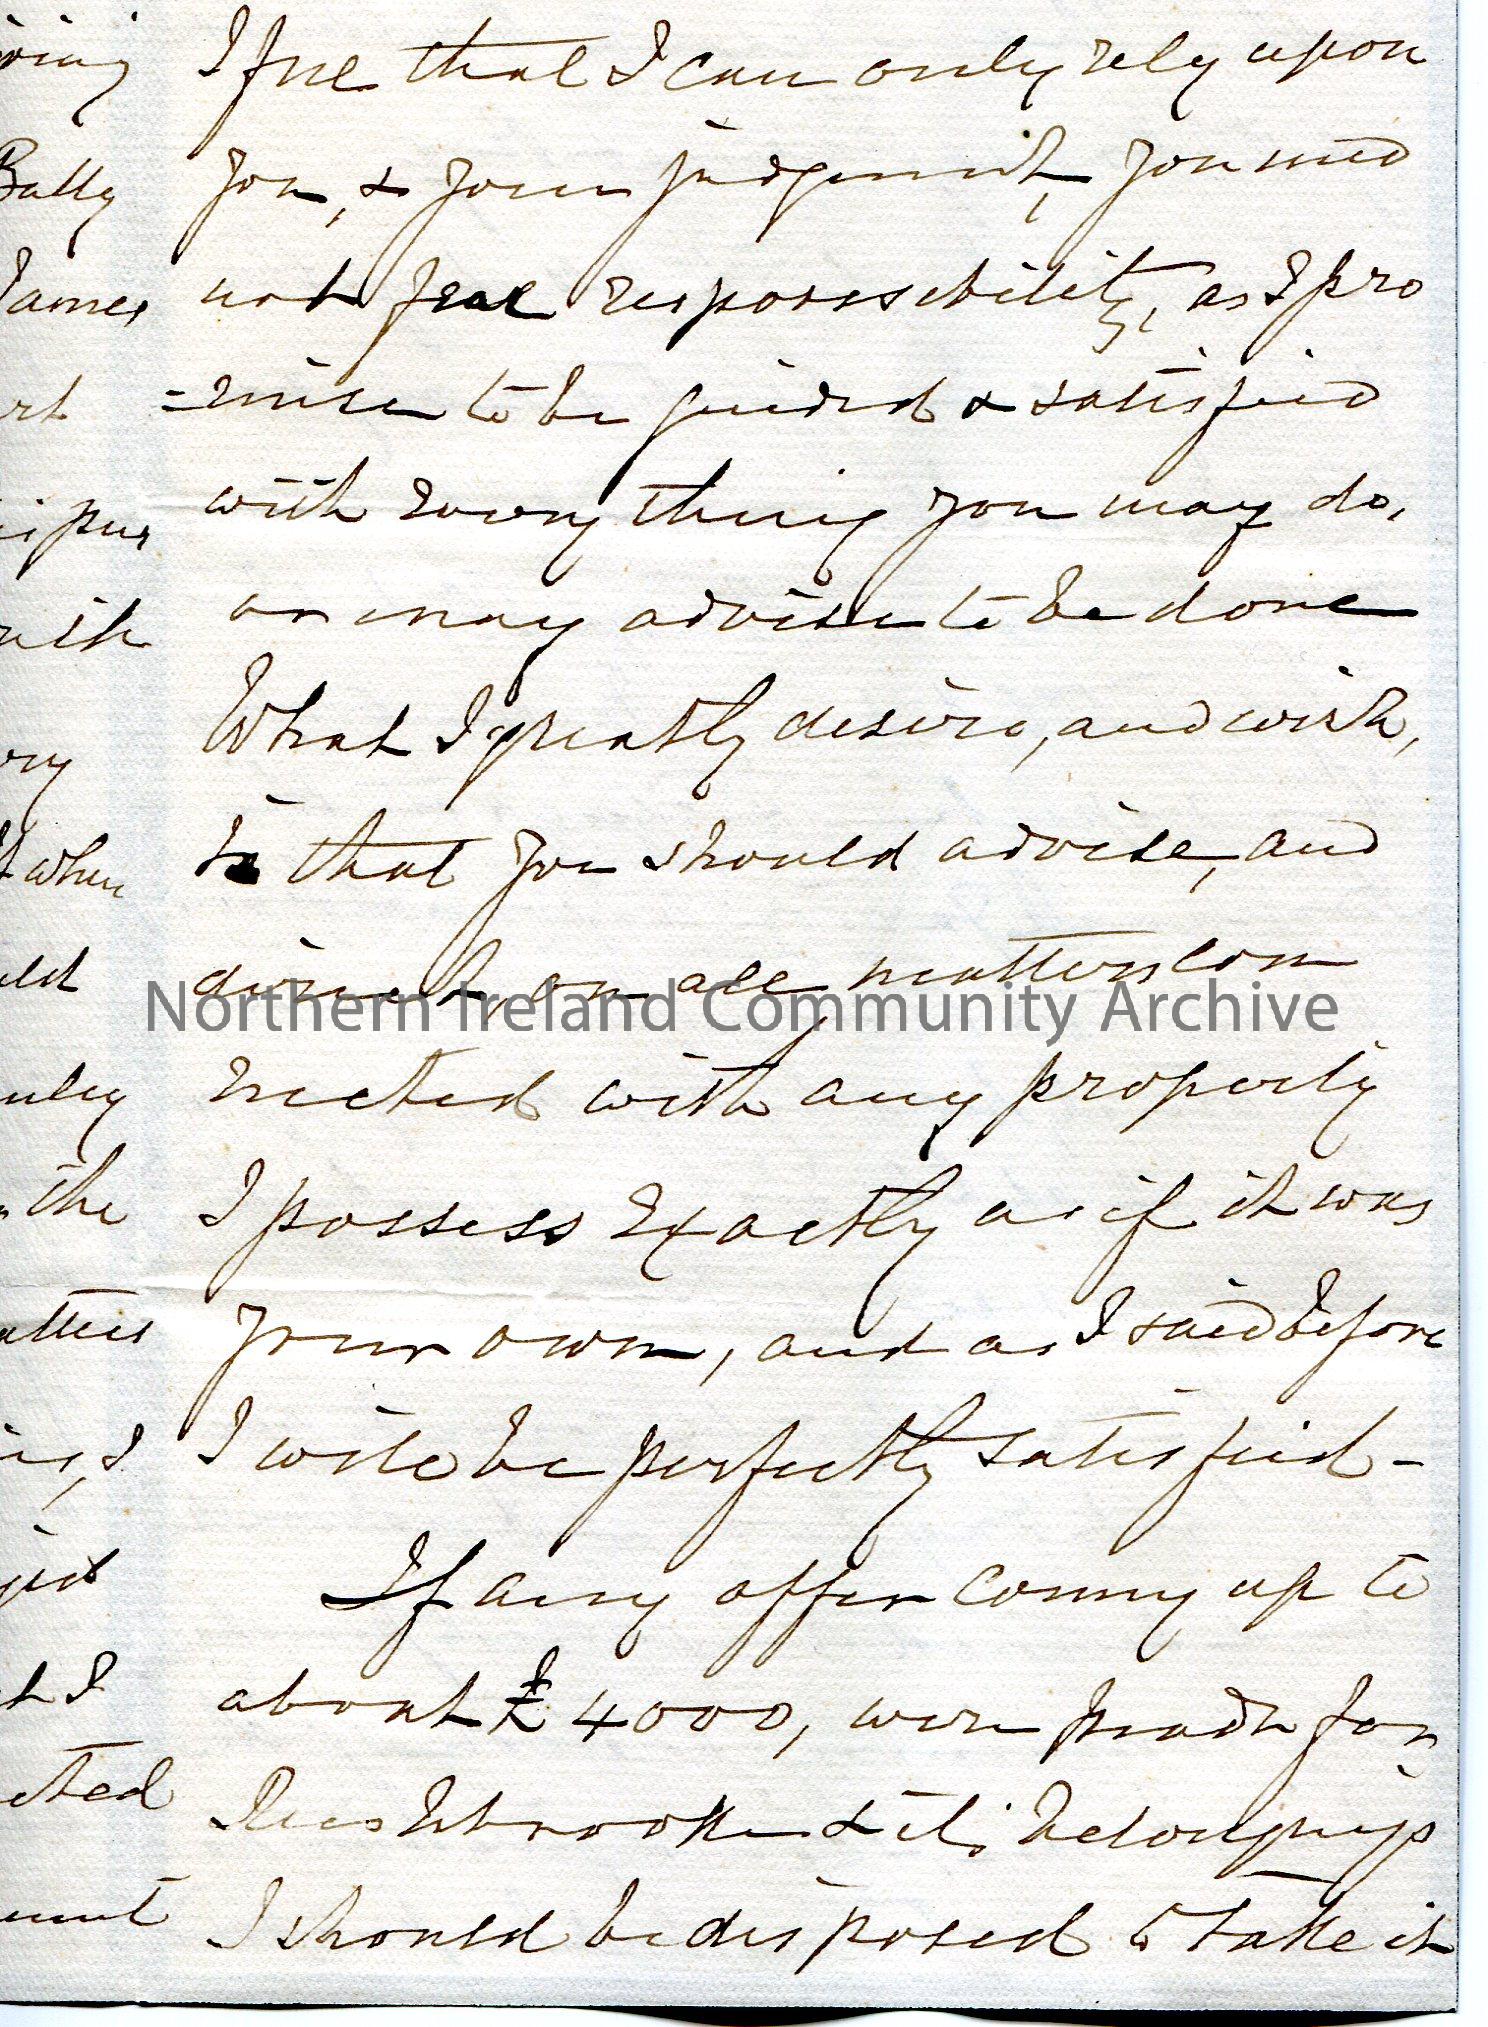 I feel that I can only rely upon
you, & your judgement, you need
not fear responsibility, as I pro
=mise to be guided & satisfied
with every thing you may do,
or may advise to be done
What I greatly desire, and wish,
is that you should advise, and
direct, on all matters con
nected with any property
I possess exactly as if it was
your own, and as I said before
I will be perfectly satisfied -
If any offer coming up to
about £4000, were made for
& its belongings
I should be disposed to take it
Bally
James
with
when
the
Northern Ireland Community Archive